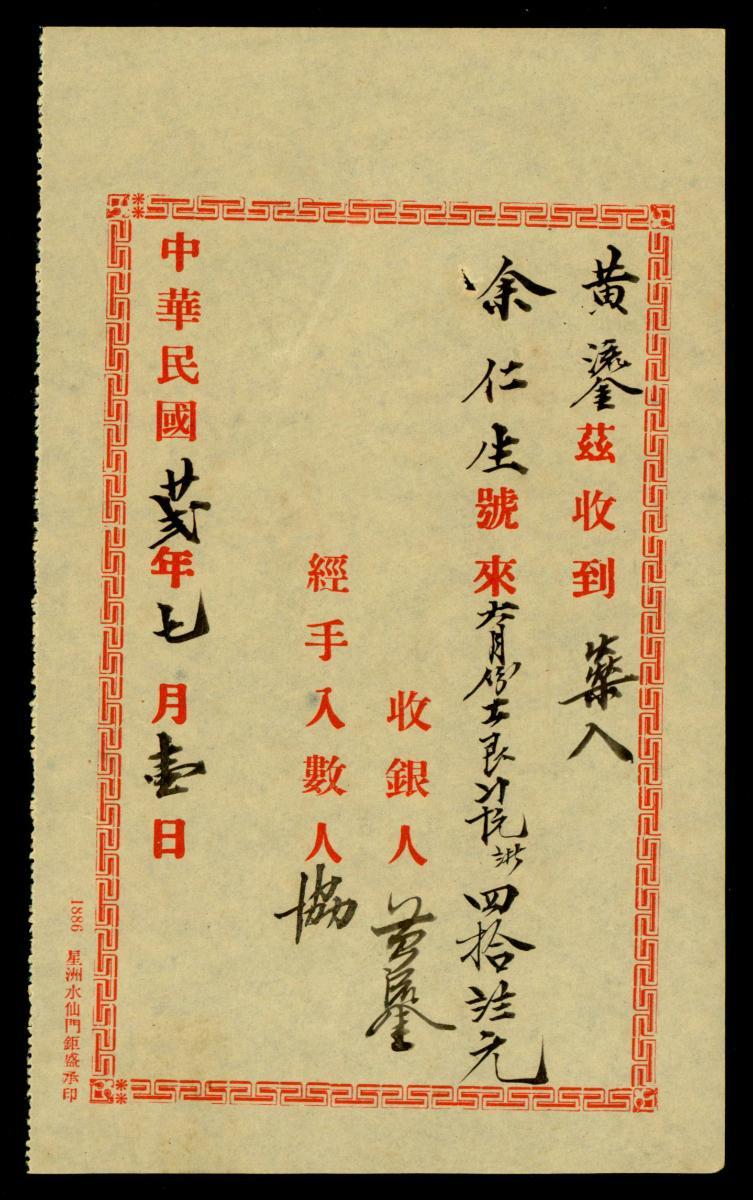 黃鎏茲收到 藥入
余仁生號來六月份工艮 四拾 元
收銀人 黃鎏
經手入數人 協
中華民國廿弍年七月壹日
1886 星洲水仙門鉅盛承印